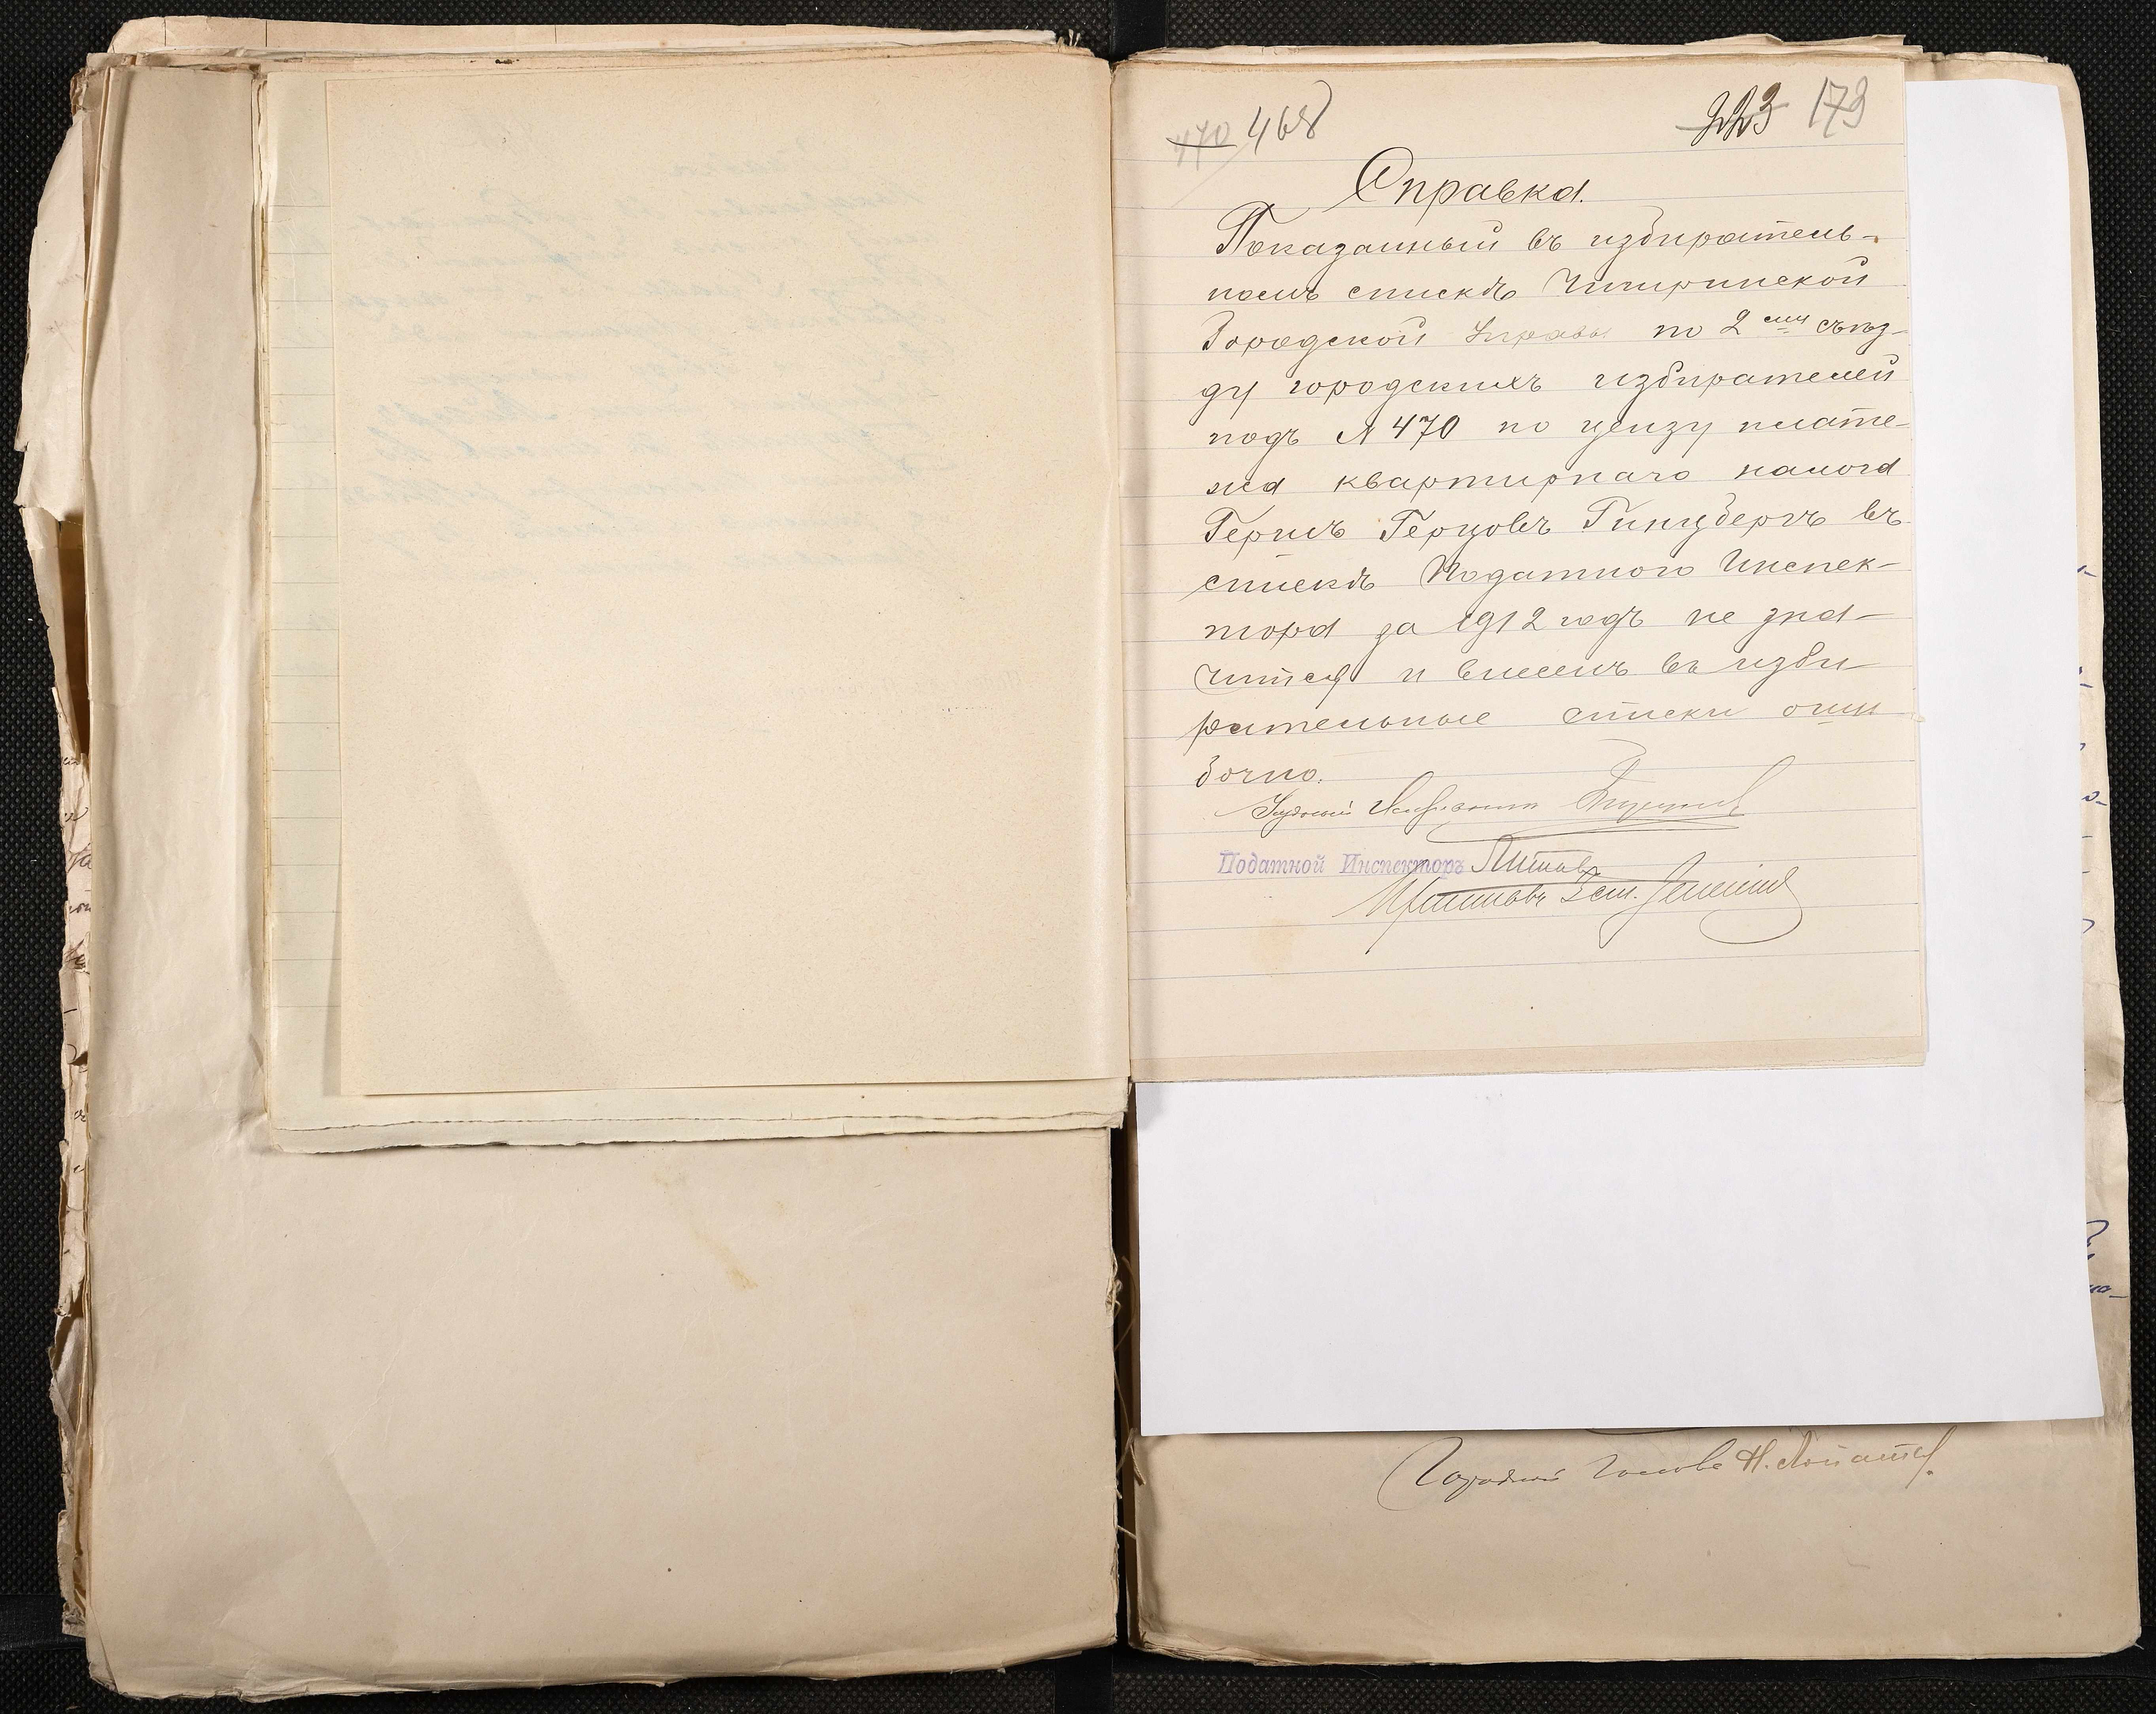 470 468
223 179
Справка.
Показанный въ избиратель-
номъ спискѣ Чигиринской
Городской Управы по 2 ему съѣз-
ду городскихъ избирателей
подъ N 470 по цензу плате-
жа квартирнаго налога
Гершъ Герцовъ Гинцбергъ въ
спискѣ Податного Инспек-
тора за 1912 годъ не зна-
чится и внесенъ въ изби
рательные списки оши
бочно.
Уѣздный Исправникъ
Податной Инспекторъ
Городской Голова Н.